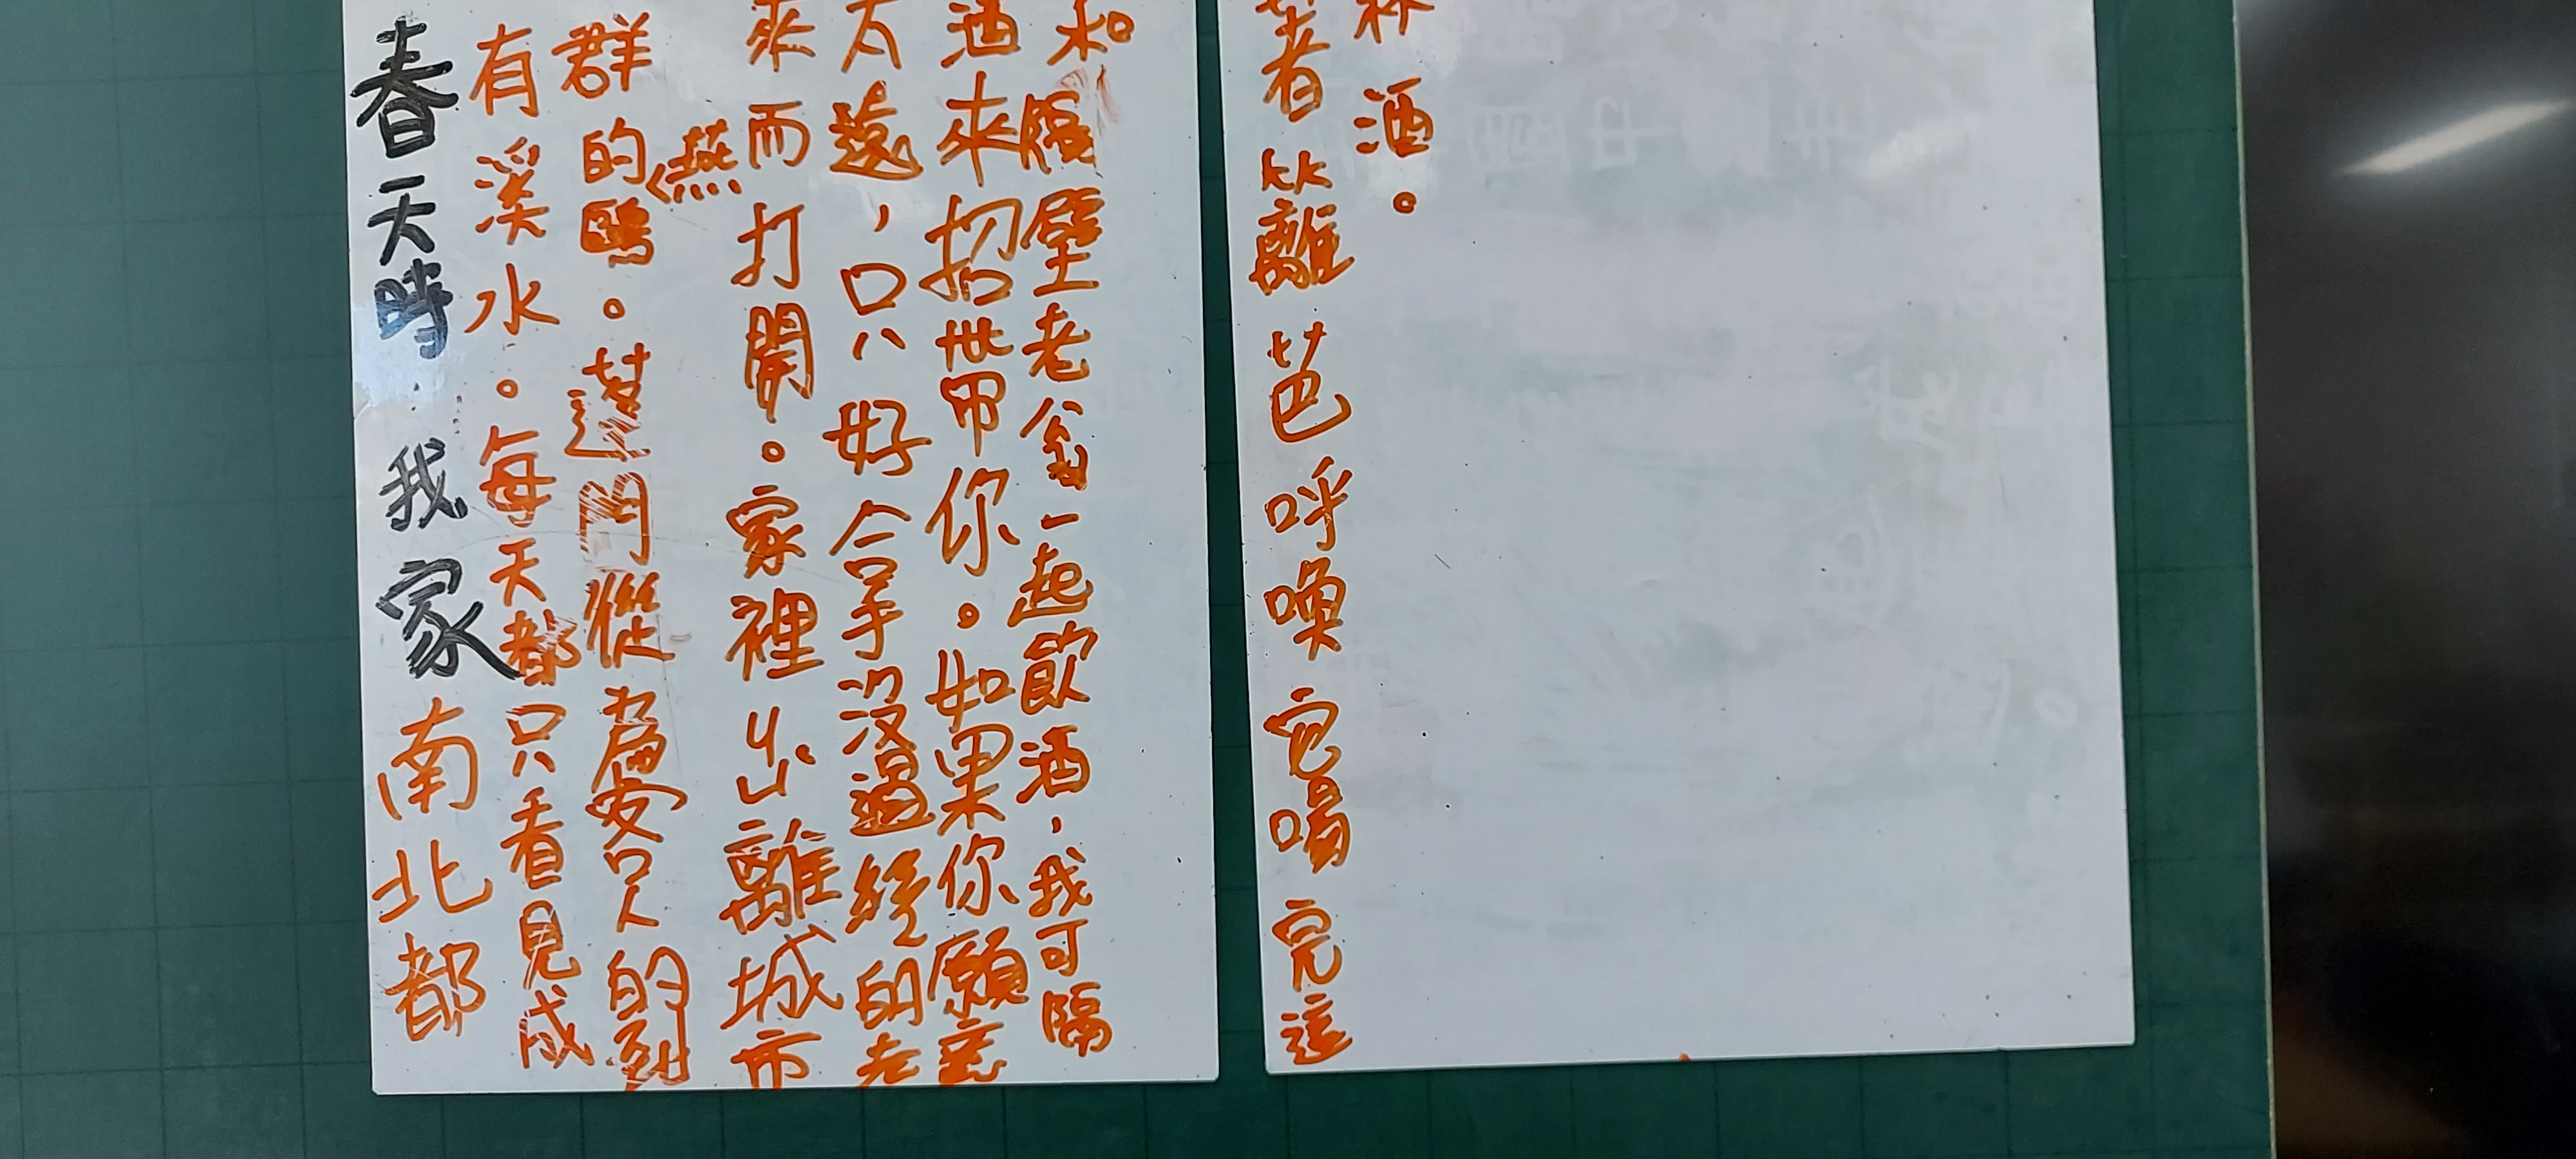 春天時.我家南北都
有溪水。每天都只看見成
群的鷗。蓬門從為愛只的到
燕
來而打開。家裡出離城市
太遠,只好拿沒過經的老
酒來招帶你。如果你願意
和隔壁老翁一起飲酒,我可隔
著籬芭呼喚它喝完這
杯酒。